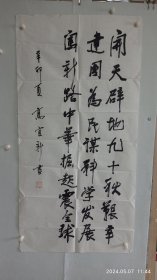 開天辟地九十秋艱辛
建國為民謀科学发展
富新路中華振起震全球
辛卯夏 高宜新 书
2024.05.07 11:44